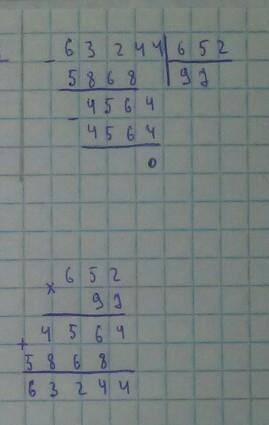 - 63244 | 652
5868 | 97
- 4564
4564
0
× 652
97
+ 4564
5868
63244